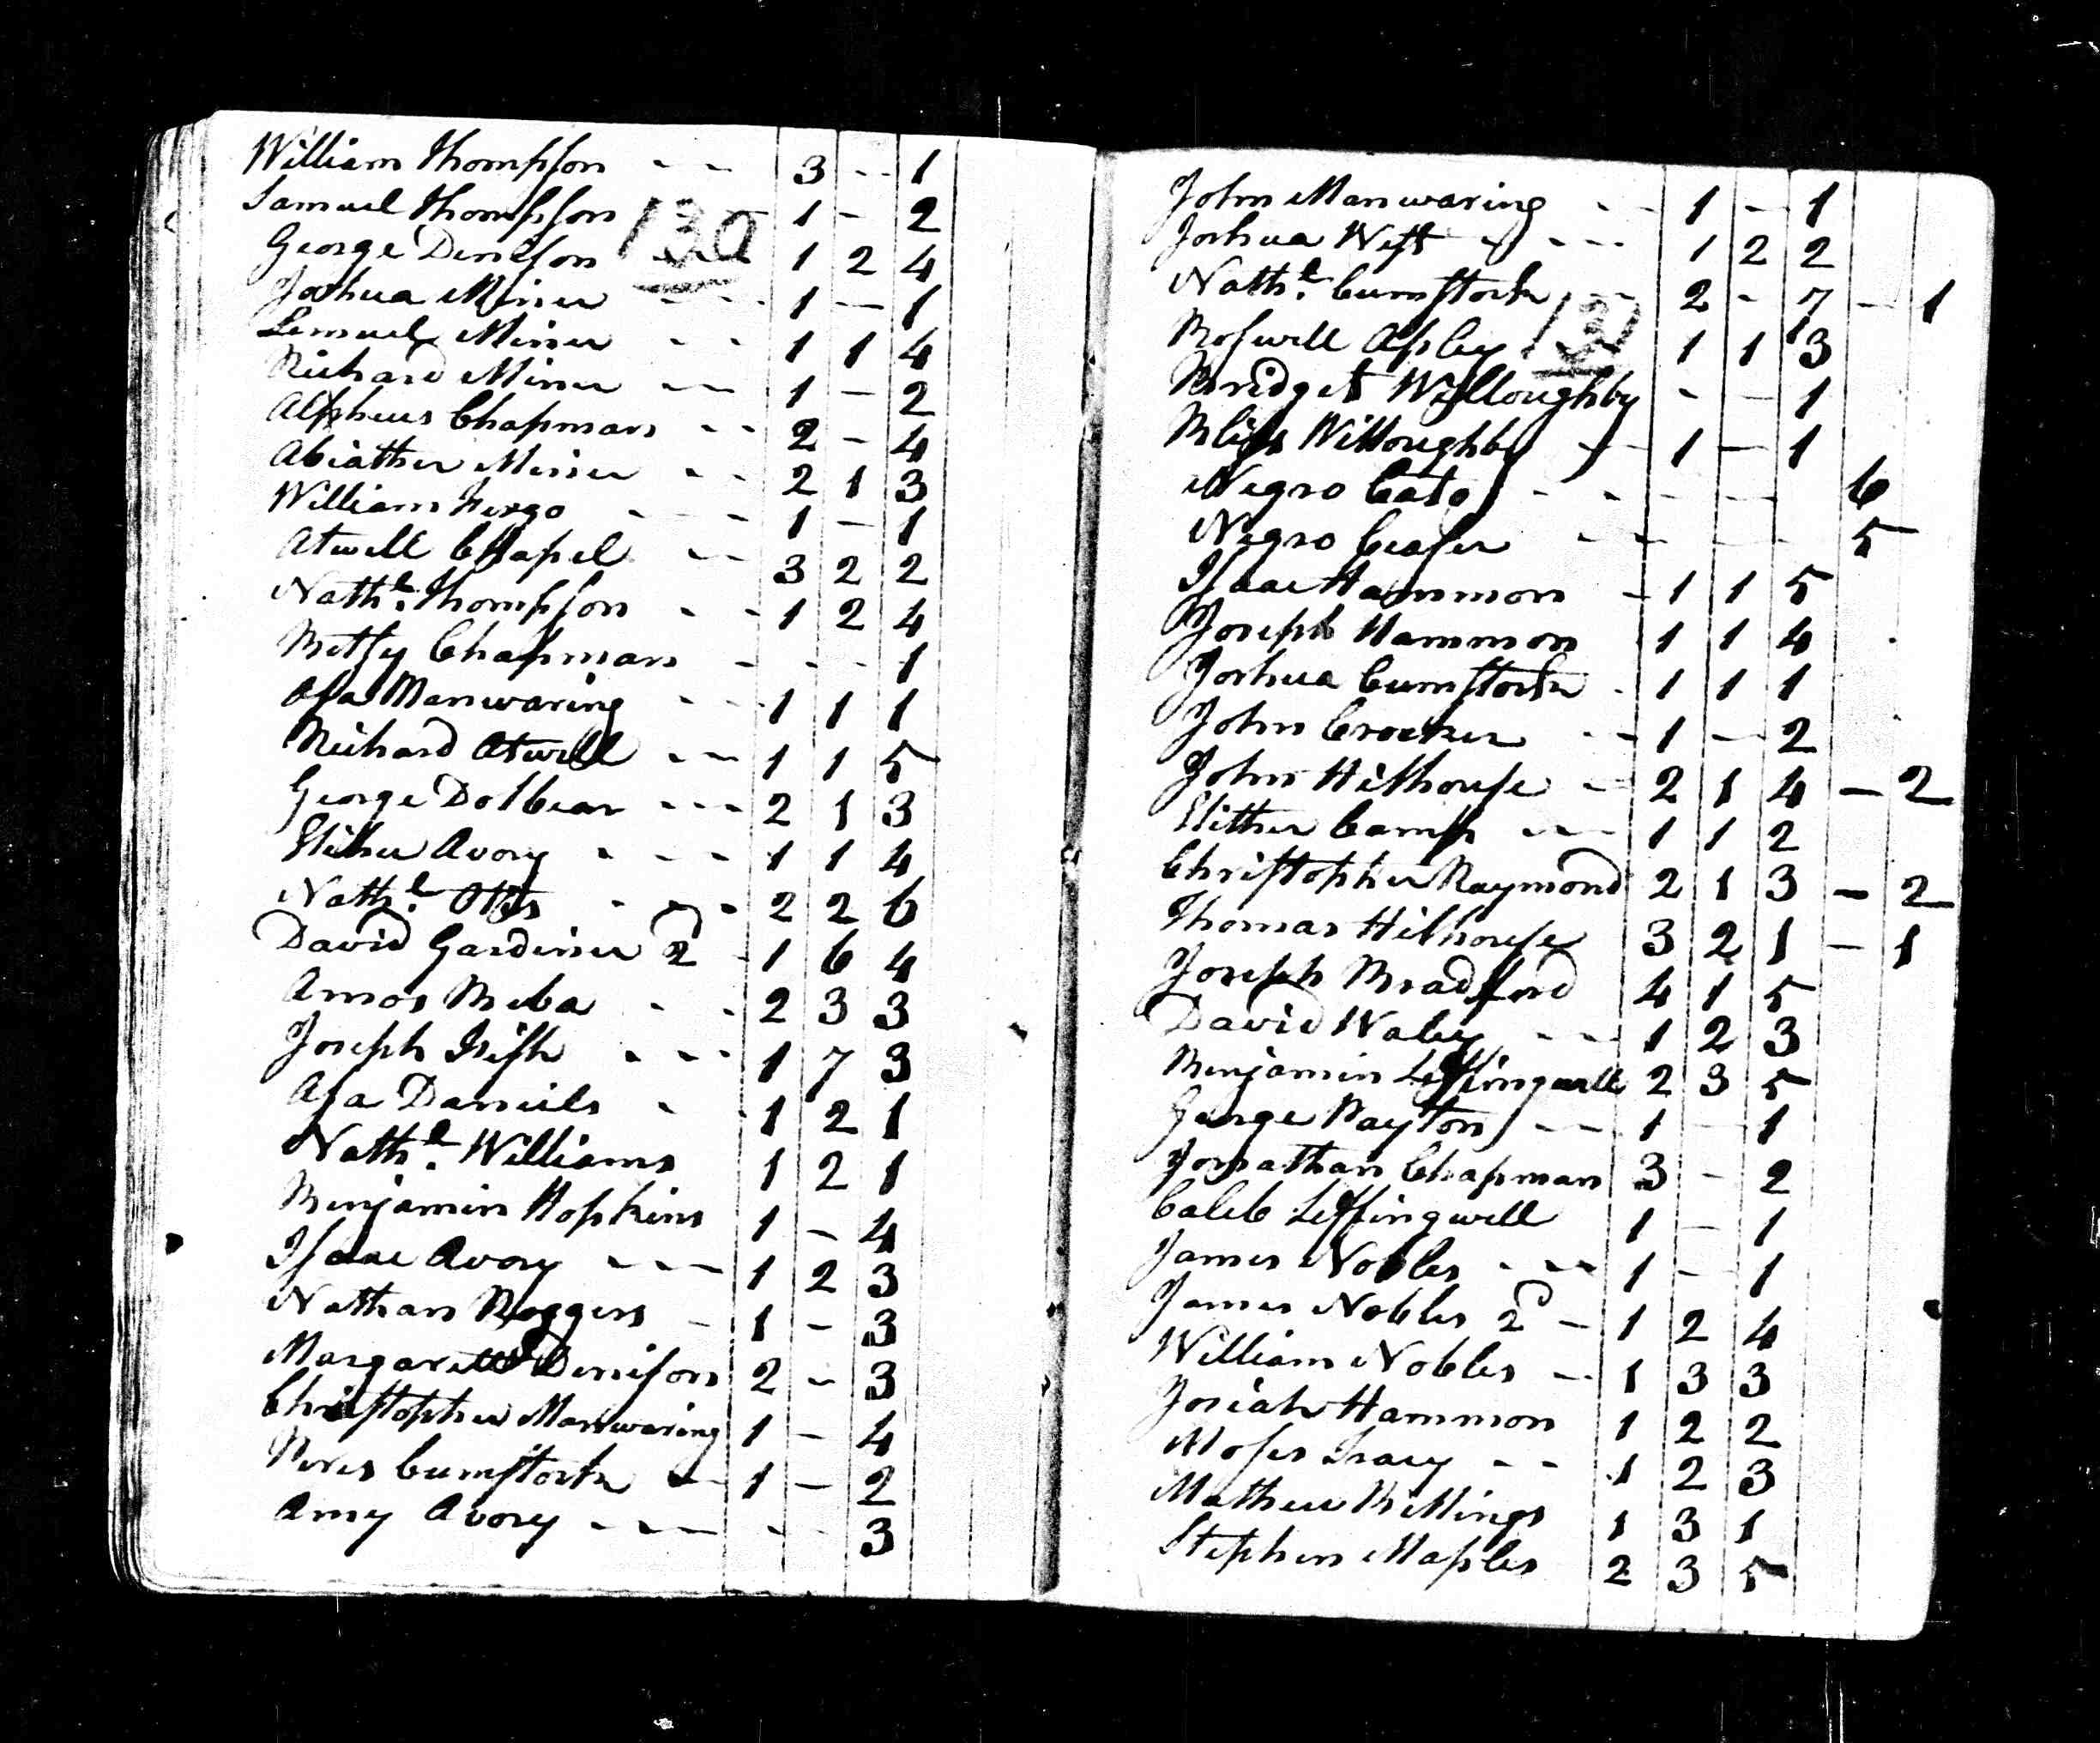 William Thompson - - 3 - - 1
Samuel Thompson 1 - 2
130
George Denison 1 2 4
Joshua Miner - - - 1 - 1
Lemuel Miner - - 1 1 4
Richard Miner - - 1 - 2
Alpheus Chapman - - 2 - 4
Abiather Miner - - 2 1 3
William Fargo - - - 1 - 1
Atwell Chapel - - 3 2 2
Nathl. Thompson - - 1 2 4
Betsy Chapman - - - 1
Asa Manwaring - - 1 1 1
Richard Atwell - - 1 1 5
George Dolbear - - - 2 1 3
Elihu Avory - - - 1 1 4
Nathl. Otis - - - 2 2 6
David Gardiner 2d - 1 6 4
Amos Beba - - 2 3 3
Joseph Fish - - - 1 7 3
Asa Daniels - - 1 2 1
Nathl. Williams 1 2 1
Benjamin Hopkins 1 - 4
Isaac Avory - - - 1 2 3
Nathan Roggers - 1 - 3
Margarett Denison 2 - 3
Christopher Manwaring 1 - 4
Peres Cumstock - - 1 - 2
Amy Avory - - - - - 3
John Manwaring - - 1 - 1
Joshua West - - - 1 2 2
Nathl. Cumstock - 2 - 7 - 1
131
Roswell Apley 1 1 3
Bridget Willoughby - - 1
Bliss Willoughby - - 1 - 1
Negro Cato - - - - 6
Negro Ceaser - - - - 5
Isaac Hammon - 1 1 5
Joseph Hammon 1 1 4
Joshua Cumstock - 1 1 1
John Crocker - - 1 - 2
John Hilhouse - 2 1 4 - 2
Camp - - 1 1 2
Christopher Raymond 2 1 3 - 2
Thomas Hilhouse 3 2 1 - 1
Joseph Bradford 4 1 5
David Waley - - 1 2 3
Benjamin Leffingwell 2 3 5
George Payton - - 1 - 1
Jonathan Chapman 3 - 2
Caleb Leffingwell 1 - 1
James Nobles - - - 1 - 1
James Nobles 2d - 1 2 4
William Nobles - - 1 3 3
Josiah Hammon 1 2 2
Moses Tracy - - 1 2 3
Mathew Billings 1 3 1
Stephen Maples 2 3 5